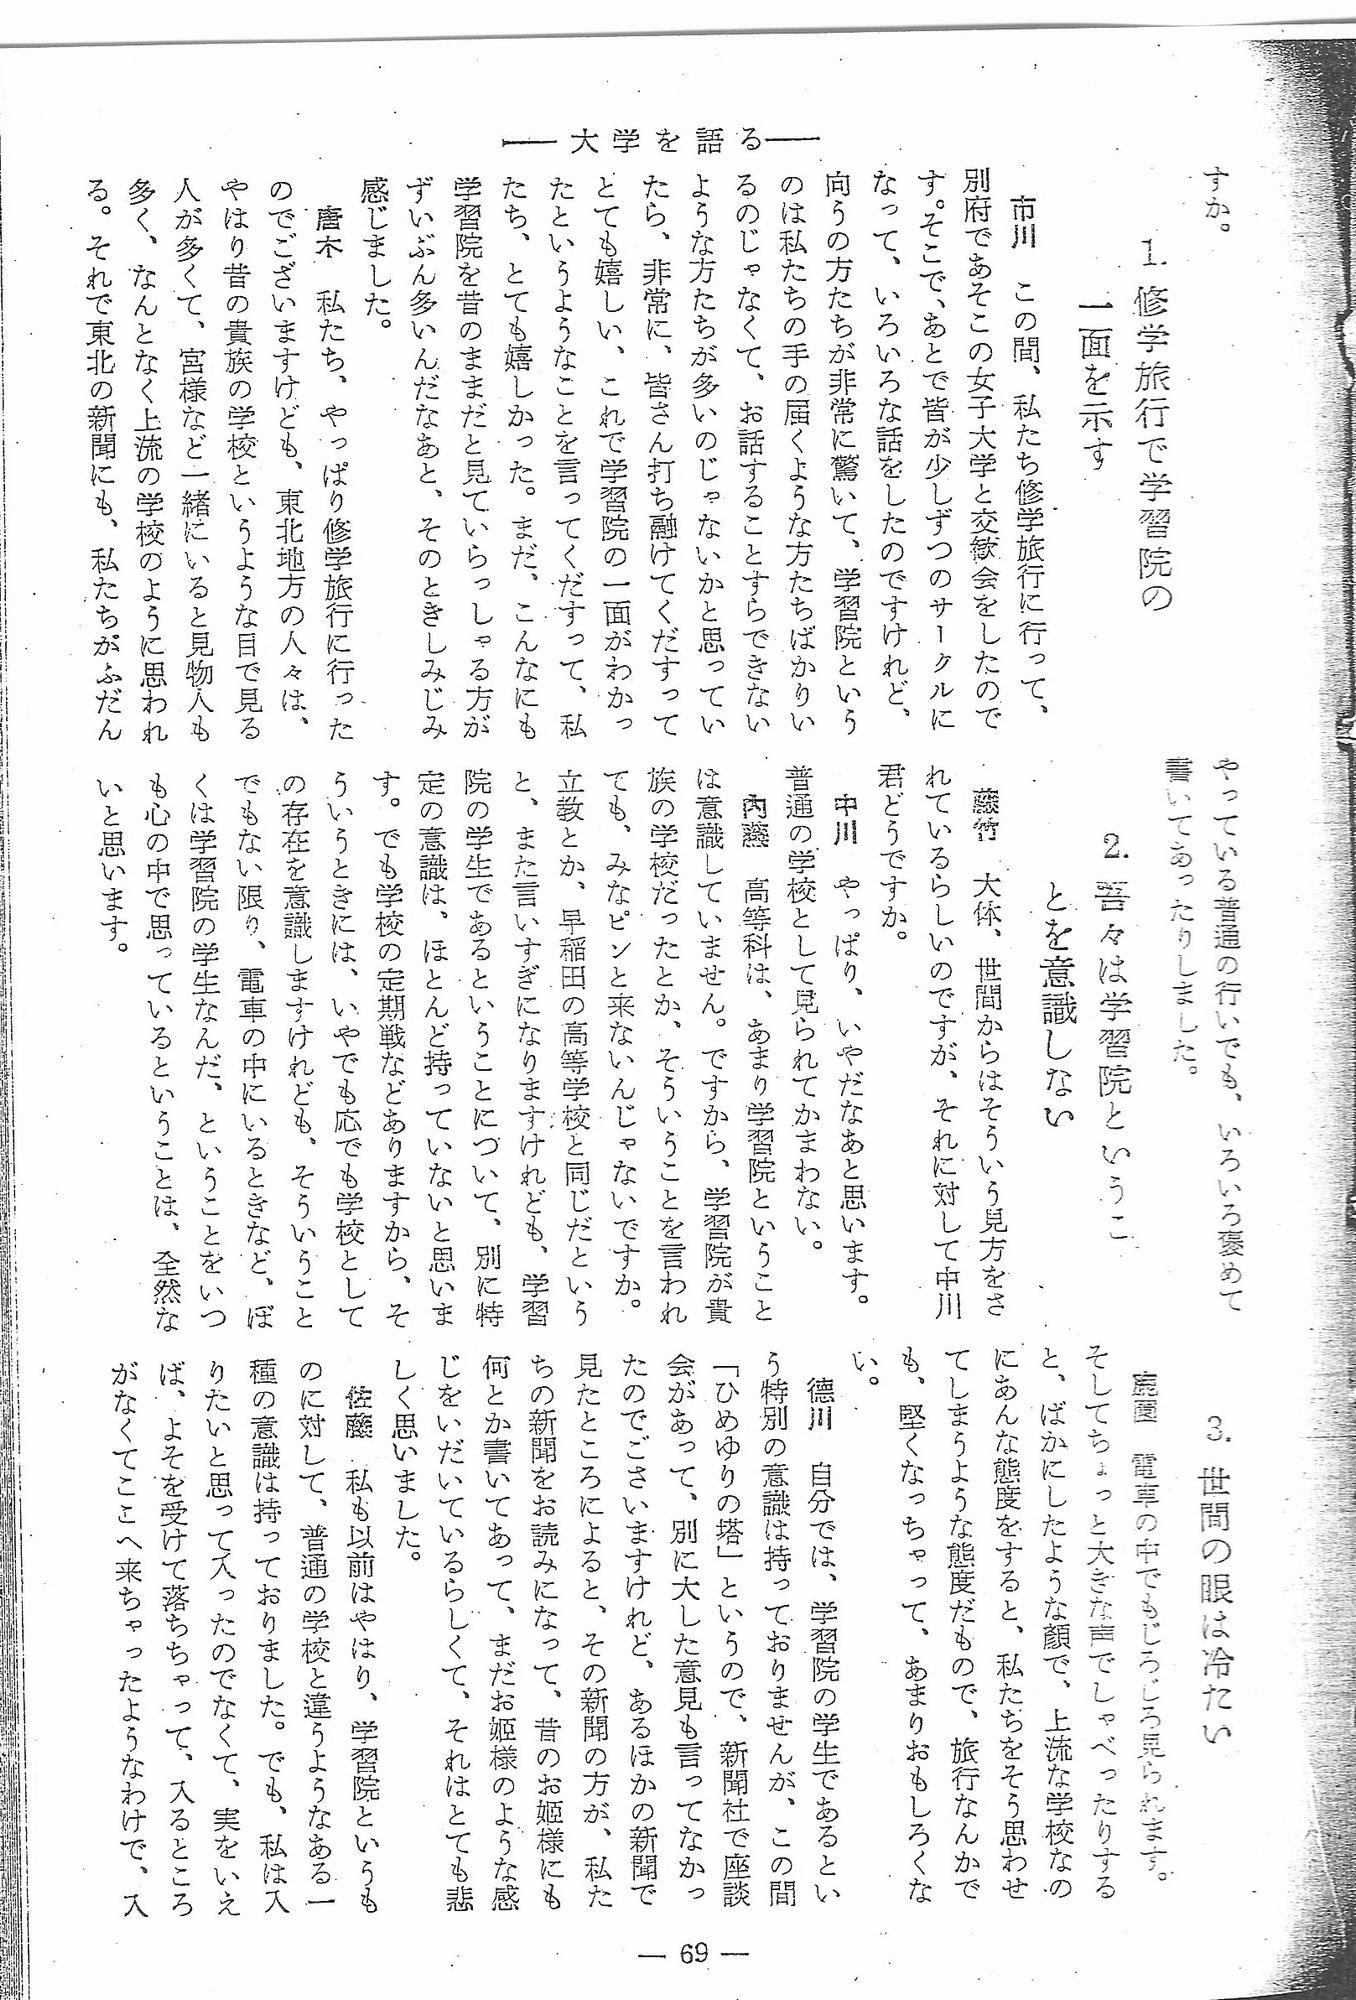 ―― 大学を語る ――
すか。
1. 修学旅行で学習院の
一面を示す
市川　この間、私たち修学旅行に行って、
別府であそこの女子大学と交歓会をしたので
す。そこで、あとで皆が少しずつのサークルに
なって、いろいろな話をしたのですけれど、
向うの方たちが非常に驚いて、学習院という
のは私たちの手の届くような方たちばかりい
るのじゃなくて、お話することすらできない
ような方たちが多いのじゃないかと思ってい
たら、非常に、皆さん打ち融けてくだすって
とても嬉しい、これで学習院の一面がわかっ
たというようなことを言ってくだすって、私
たち、とても嬉しかった。まだ、こんなにも
学習院を昔のままだと見ていらっしゃる方が
ずいぶん多いんだなあと、そのときしみじみ
感じました。
唐木　私たち、やっぱり修学旅行に行った
のでございますけども、東北地方の人々は、
やはり昔の貴族の学校というような目で見る
人が多くて、宮様など一緒にいると見物人も
多く、なんとなく上流の学校のように思われ
る。それで東北の新聞にも、私たちがふだん
やっている普通の行いでも、いろいろ褒めて
書いてあったりしました。
2. 吾々は学習院というこ
とを意識しない
藤竹　大体、世間からはそういう見方をさ
れているらしいのですが、それに対して中川
君どうですか。
中川　やっぱり、いやだなあと思います。
普通の学校として見られてかまわない。
内藤　高等科は、あまり学習院ということ
は意識していません。ですから、学習院が貴
族の学校だったとか、そういうことを言われ
ても、みなピンと来ないんじゃないですか。
立教とか、早稲田の高等学校と同じだという
と、また言いすぎになりますけれども、学習
院の学生であるということについて、別に特
定の意識は、ほとんど持っていないと思いま
す。でも学校の定期戦などありますから、そ
ういうときには、いやでも応でも学校として
の存在を意識しますけれども、そういうこと
でもない限り、電車の中にいるときなど、ぼ
くは学習院の学生なんだ、ということをいつ
も心の中で思っているということは、全然な
いと思います。
3. 世間の眼は冷たい
鹿園　電車の中でもじろじろ見られます。
そしてちょっと大きな声でしゃべったりする
と、ばかにしたような顔で、上流な学校なの
にあんな態度をすると、私たちをそう思わせ
てしまうような態度だもので、旅行なんかで
も、堅くなっちゃって、あまりおもしろくな
い。
徳川　自分では、学習院の学生であるとい
う特別の意識は持っておりませんが、この間
「ひめゆりの塔」というので、新聞社で座談
会があって、別に大した意見も言ってなかっ
たのでございますけれど、あるほかの新聞で
見たところによると、その新聞の方が、私た
ちの新聞をお読みになって、昔のお姫様にも
何とか書いてあって、まだお姫様のような感
じをいだいているらしくて、それはとても悲
しく思いました。
佐藤　私も以前はやはり、学習院というも
のに対して、普通の学校と違うようなある一
種の意識は持っておりました。でも、私は入
りたいと思って入ったのでなくて、実をいえ
ば、よそを受けて落ちちゃって、入るところ
がなくてここへ来ちゃったようなわけで、入
― 69 ―